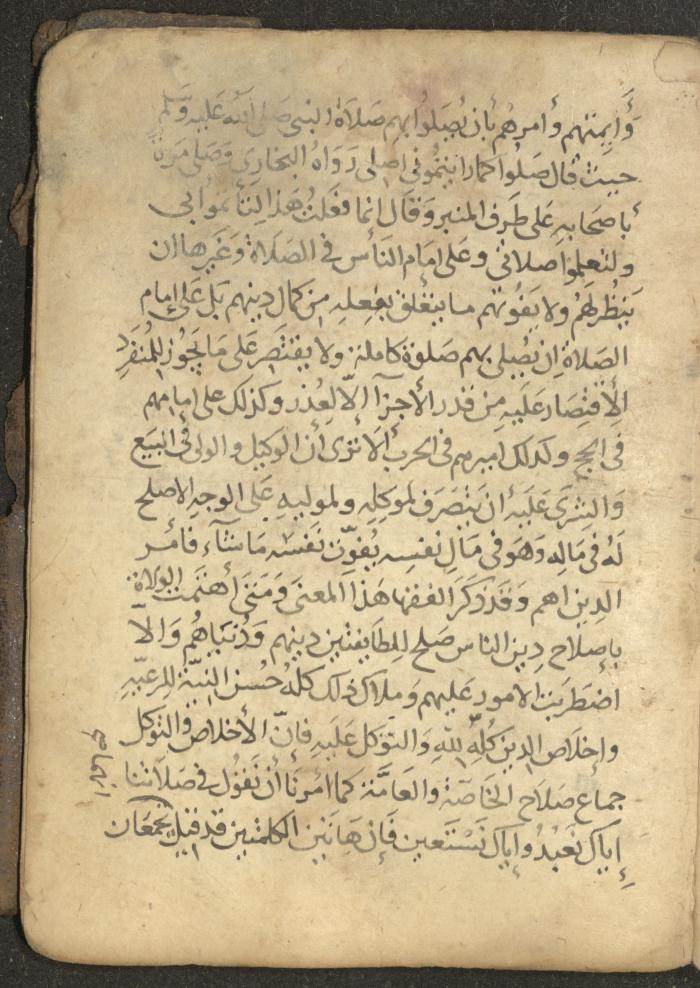 وأيمتهم وأمرهم بأن يصلوا بهم صلاة النبي صلى الله عليه وسلم
حيث قال صلوا كما رايتموني اصلي رواه البخاري وصلى مرة
بأصحابه على طرف المنبر وقال انما فعلت هذا لتأتموا بي
ولتعلموا صلاتي وعلى امام الناس في الصلاة وغيرها ان
ينظر لهم ولا يفوتهم ما يتعلق بفعله من كمال دينهم بل على إمام
الصلاة ان يصلي بهم صلوة كاملة ولا يقتصر على ما يجوز للمنفرد
الاقتصار عليه من قدر الأجزآ إلا لعذر وكذلك على امامهم
في الحج وكذلك اميرهم في الحرب ألا ترى أن الوكيل والولي في البيع
والشرى عليه أن يتصرف لموكله ولموليه على الوجه الاصلح
له في ماله وهو في مال نفسه يفوت نفسه ما شآء فأمر
الدين اهم وقد ذكر الفقها هذا المعنى ومتى أهتمت الولاة
بإصلاح دين الناس صلح للطايفتين دينهم ودنياهم والا
اضطربت الامور عليهم وملاك ذلك كله حسن النية للرعيه
وإخلاص الدين كله لله والتوكل عليه فان الأخلاص والتوكل
جماع صلاح الخاصة والعامة كما امرنا أن نقول في صلاتنا
إياك نعبد وإياك نستعين فإن هاتين الكلمتين قد قيل يجمعان